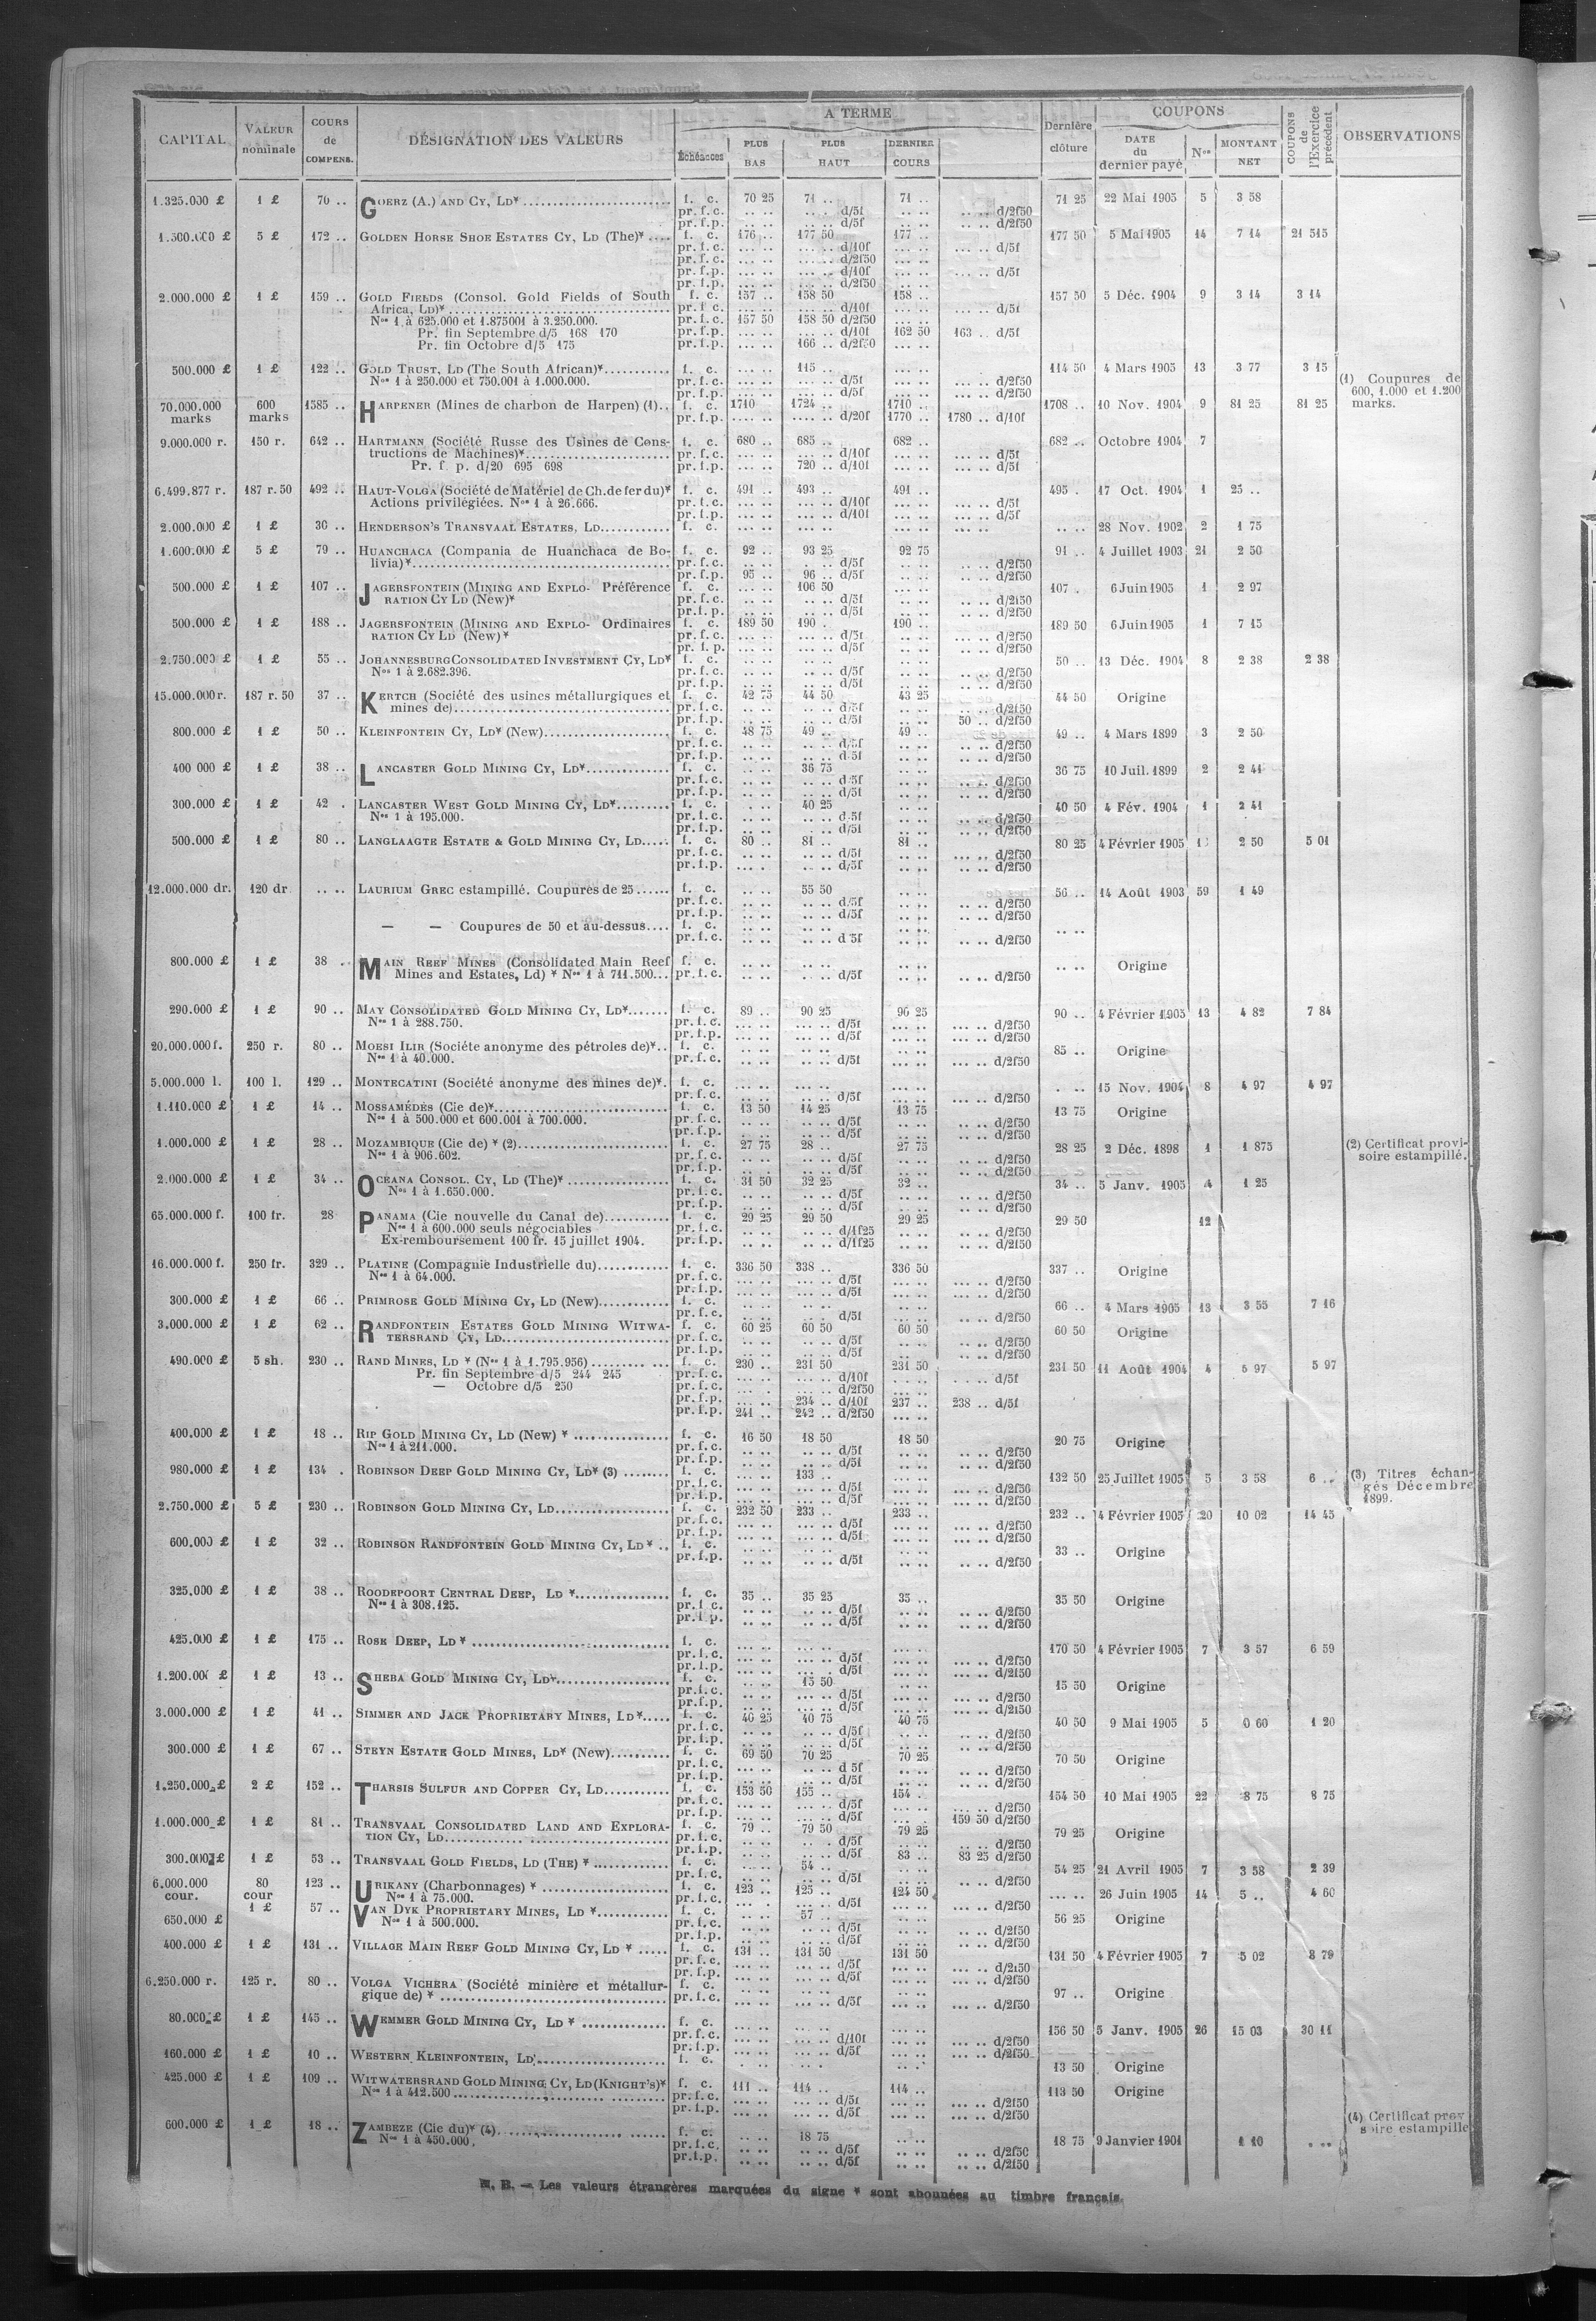 CAPITAL | VALEUR nominale | COURS de COMPENS. | DÉSIGNATION DES VALEURS | A TERME | Échéances | PLUS BAS | PLUS HAUT | DERNIER COURS | Dernière clôture | COUPONS | DATE du dernier payé | Nos | MONTANT NET | COUPONS de l'Exercice précédent | OBSERVATIONS
1.325.000 £ 1 £ 70 .. GOERZ (A.) AND CY, LD* f. c. 70 25 71 .. 71 .. 71 25 22 Mai 1905 5 3 58
pr. f. c. .. .. .. .. d/5f .. .. .. .. d/2f50
pr. f. p. .. .. .. .. d/5f .. .. .. .. d/2f50
1.500.000 £ 5 £ 172 .. GOLDEN HORSE SHOE ESTATES CY, LD (The)* f. c. 176 .. 177 50 177 .. 177 50 5 Mai 1905 14 7 14 21 515
pr. f. c. ... .. ... .. d/10f ... .. ... .. d/5f
pr. f. c. ... .. ... .. d/2f50 ... ..
pr. f. p. ... .. ... .. d/10f ... .. ... .. d/5f
pr. f. p. ... .. ... .. d/2f50 ... ..
2.000.000 £ 1 £ 159 .. GOLD FIELDS (Consol. Gold Fields of South f. c. 157 .. 158 50 158 .. 157 50 5 Déc. 1904 9 3 14 3 14
Africa, LD)* pr. f. c. ... .. ... .. d/10f ... .. ... .. d/5f
Nos 1 à 625.000 et 1.875001 à 3.250.000. pr. f. c. 157 50 158 50 d/2f50 ... ..
Pr. fin Septembre d/5 168 170 pr. f. p. ... .. ... .. d/10f 162 50 163 .. d/5f
Pr. fin Octobre d/5 175 pr. f. p. ... .. 166 .. d/2f50 ... ..
500.000 £ 1 £ 122 .. GOLD TRUST, LD (The South African)* f. c. ... .. 115 .. ... .. 114 50 4 Mars 1905 13 3 77 3 15
Nos 1 à 250.000 et 750.001 à 1.000.000. pr. f. c. ... .. ... .. d/5f ... .. ... .. d/2f50 (1) Coupures de
pr. f. p. ... .. ... .. d/5f ... .. ... .. d/2f50 600, 1.000 et 1.200
70.000.000 marks 600 marks 1585 .. HARPENER (Mines de charbon de Harpen) (1) f. c. 1710 1724 .. 1710 .. 1708 .. 10 Nov. 1904 9 81 25 81 25 marks.
pr. f. p. .... .. .... .. d/20f 1770 .. 1780 .. d/10f
9.000.000 r. 150 r. 642 .. HARTMANN (Société Russe des Usines de Cons- f. c. 680 .. 685 .. 682 .. 682 .. Octobre 1904 7
tructions de Machines)* pr. f. c. ... .. ... .. d/10f ... .. ... .. d/5f
Pr. f. p. d/20 695 698 pr. f. p. ... .. 720 .. d/10f ... .. ... .. d/5f
6.499.877 r. 187 r. 50 492 .. HAUT-VOLGA (Société de Matériel de Ch. de fer du)* f. c. 491 .. 493 .. 491 .. 495 . 17 Oct. 1904 1 25 ..
Actions privilégiées. Nos 1 à 26.666. pr. f. c. ... .. ... .. d/10f ... .. ... .. d/5f
pr. f. p. ... .. ... .. d/10f ... .. ... .. d/5f
2.000.000 £ 1 £ 30 .. HENDERSON'S TRANSVAAL ESTATES, LD f. c. ... .. ... .. ... .. ... .. .. .. 28 Nov. 1902 2 1 75
1.600.000 £ 5 £ 79 .. HUANCHACA (Compania de Huanchaca de Bo- f. c. 92 .. 93 25 92 75 91 .. 4 Juillet 1903 21 2 50
livia)* pr. f. c. .. .. .. .. d/5f .. .. .. .. d/2f50
pr. f. p. 95 .. 96 .. d/5f .. .. .. .. d/2f50
500.000 £ 1 £ 107 .. JAGERSFONTEIN (MINING AND EXPLO- Préférence f. c. ... .. 106 50 ... .. 107 . 6 Juin 1905 1 2 97
RATION CY LD (New)* pr. f. c. .. .. .. .. d/5f .. .. .. .. d/2f50
pr. f. p. .. .. .. .. d/5f .. .. .. .. d/2f50
500.000 £ 1 £ 188 .. JAGERSFONTEIN (MINING AND EXPLO- Ordinaires f. c. 189 50 190 . 190 .. 189 50 6 Juin 1905 1 7 15
RATION CY LD (New)* pr. f. c. ... .. ... .. d/5f .. .. .. .. d/2f50
pr. f. p. ... .. ... .. d/5f .. .. .. .. d/2f50
2.750.000 £ 1 £ 55 .. JOHANNESBURG CONSOLIDATED INVESTMENT CY, LD* f. c. .. .. .. .. .. .. 50 .. 13 Déc. 1904 8 2 38 2 38
Nos 1 à 2.682.396. pr. f. c. .. .. .. .. d/5f .. .. .. .. d/2f50
pr. f. p. .. .. .. .. d/5f .. .. .. .. d/2f50
15.000.000 r. 187 r. 50 37 .. KERTCH (Société des usines métallurgiques et f. c. 42 75 44 50 43 25 44 50 Origine
mines de) pr. f. c. .. .. .. .. d/5f .. .. .. .. d/2f50
pr. f. p. .. .. .. .. d/5f .. .. 50 .. d/2f50
800.000 £ 1 £ 50 .. KLEINFONTEIN CY, LD* (New) f. c. 48 75 49 .. 49 .. 49 .. 4 Mars 1899 3 2 50
pr. f. c. .. .. .. .. d/5f .. .. .. .. d/2f50
pr. f. p. .. .. .. .. d/5f .. .. .. .. d/2f50
400 000 £ 1 £ 38 .. LANCASTER GOLD MINING CY, LD* f. c. .. .. 36 75 .. .. 36 75 10 Juil. 1899 2 2 41
pr. f. c. .. .. .. .. d/5f .. .. .. .. d/2f50
pr. f. p. .. .. .. .. d/5f .. .. .. .. d/2f50
300.000 £ 1 £ 42 . LANCASTER WEST GOLD MINING CY, LD* f. c. .. .. 40 25 .. .. 40 50 4 Fév. 1904 1 2 41
Nos 1 à 195.000. pr. f. c. .. .. .. .. d/5f .. .. .. .. d/2f50
pr. f. p. .. .. .. .. d/5f .. .. .. .. d/2f50
500.000 £ 1 £ 80 .. LANGLAAGTE ESTATE & GOLD MINING CY, LD f. c. 80 .. 81 .. 81 .. 80 25 4 Février 1905 2 50 5 01
pr. f. c. ... .. ... .. d/5f ... .. ... .. d/2f50
pr. f. p. ... .. ... .. d/5f ... .. ... .. d/2f50
12.000.000 dr. 120 dr. .. .. LAURIUM GREC estampillé. Coupures de 25 f. c. .. .. 55 50 .. .. 56 .. 14 Août 1903 59 1 49
pr. f. c. .. .. .. .. d/5f .. .. .. .. d/2f50
pr. f. p. .. .. .. .. d/5f .. .. .. .. d/2f50
— — Coupures de 50 et au-dessus f. c. .. .. .. .. .. .. .. ..
pr. f. c. .. .. .. .. d/5f .. .. .. .. d/2f50
800.000 £ 1 £ 38 . MAIN REEF MINES (Consolidated Main Reef f. c. .. .. .. .. .. .. .. .. Origine
Mines and Estates, Ld) * Nos 1 à 711.500 pr. f. c. .. .. .. .. d/5f .. .. .. .. d/2f50
290.000 £ 1 £ 90 .. MAY CONSOLIDATED GOLD MINING CY, LD* f. c. 89 .. 90 25 90 25 90 .. 4 Février 1905 13 4 82 7 84
Nos 1 à 288.750. pr. f. c. ... .. ... .. d/5f ... .. ... .. d/2f50
pr. f. p. ... .. ... .. d/5f ... .. ... .. d/2f50
20.000.000 f. 250 r. 80 .. MOESI ILIR (Société anonyme des pétroles de)* f. c. ... .. .. .. .. .. 85 .. Origine
Nos 1 à 40.000. pr. f. c. ... .. ... .. d/5f ... .. ... .. d/2f50
5.000.000 l. 100 l. 129 .. MONTECATINI (Société anonyme des mines de)* f. c. ... .. ... .. ... .. . .. 15 Nov. 1904 8 4 97 4 97
pr. f. c. ... .. ... .. d/5f ... .. ... .. d/2f50
1.110.000 £ 1 £ 14 .. MOSSAMÉDÈS (Cie de)* f. c. 13 50 14 25 13 75 13 75 Origine
Nos 1 à 500.000 et 600.001 à 700.000. pr. f. c. .. .. .. .. d/5f .. .. .. .. d/2f50
pr. f. p. .. .. .. .. d/5f .. .. .. .. d/2f50
1.000.000 £ 1 £ 28 .. MOZAMBIQUE (Cie de) * (2) f. c. 27 75 28 .. 27 75 28 25 2 Déc. 1898 1 1 875 (2) Certificat provi-
Nos 1 à 906.602. pr. f. c. .. .. .. .. d/5f .. .. .. .. d/2f50 soire estampillé.
pr. f. p. .. .. .. .. d/5f .. .. .. .. d/2f50
2.000.000 £ 1 £ 34 .. OCEANA CONSOL. CY, LD (The)* f. c. 31 50 32 25 32 .. 34 .. 5 Janv. 1905 4 1 25
Nos 1 à 1.650.000. pr. f. c. .. .. .. .. d/5f .. .. .. .. d/2f50
pr. f. p. .. .. .. .. d/5f .. .. .. .. d/2f50
65.000.000 f. 100 fr. 28 PANAMA (Cie nouvelle du Canal de) f. c. 29 25 29 50 29 25 29 50 12
Nos 1 à 600.000 seuls négociables pr. f. c. .. .. .. .. d/1f25 .. .. .. .. d/2f50
Ex-remboursement 100 fr. 15 juillet 1904. pr. f. p. .. .. .. .. d/1f25 .. .. .. .. d/2f50
16.000.000 f. 250 fr. 329 .. PLATINE (Compagnie Industrielle du) f. c. 336 50 338 .. 336 50 337 .. Origine
Nos 1 à 64.000. pr. f. c. ... .. ... .. d/5f ... .. ... .. d/2f50
pr. f. p. ... .. ... .. d/5f ... .. ... .. d/2f50
300.000 £ 1 £ 66 .. PRIMROSE GOLD MINING CY, LD (New) f. c. .. .. .. .. .. .. 66 .. 4 Mars 1905 13 3 55 7 16
pr. f. c. .. .. ... .. d/5f ... .. ... .. d/2f50
3.000.000 £ 1 £ 62 .. RANDFONTEIN ESTATES GOLD MINING WITWA- f. c. 60 25 60 50 60 50 60 50 Origine
TERSRAND CY, LD pr. f. c. .. .. .. .. d/5f .. .. .. .. d/2f50
pr. f. p. .. .. .. .. d/5f .. .. .. .. d/2f50
490.000 £ 5 sh. 230 .. RAND MINES, LD * (Nos 1 à 1.795.956) f. c. 230 .. 231 50 231 50 231 50 11 Août 1904 4 5 97 5 97
Pr. fin Septembre d/5 244 245 pr. f. c. ... .. ... .. d/10f ... .. ... .. d/5f
— Octobre d/5 250 pr. f. c. ... . ... .. d/2f50 ... ..
pr. f. p. ... .. 234 .. d/10f 237 .. 238 .. d/5f
pr. f. p. 241 .. 242 .. d/2f50 ... ..
400.000 £ 1 £ 18 .. RIP GOLD MINING CY, LD (New) * f. c. 16 50 18 50 18 50 20 75 Origine
Nos 1 à 211.000. pr. f. c. .. .. .. .. d/5f .. .. .. .. d/2f50
pr. f. p. .. .. .. .. d/5f .. .. .. .. d/2f50
980.000 £ 1 £ 134 . ROBINSON DEEP GOLD MINING CY, LD* (3) f. c. ... .. 133 .. ... .. 132 50 25 Juillet 1905 5 3 58 6 .. (3) Titres échan-
pr. f. c. ... .. ... .. d/5f ... .. ... .. d/2f50 gés Décembre
pr. f. p. ... .. ... .. d/5f ... .. ... .. d/2f50 1899.
2.750.000 £ 5 £ 230 .. ROBINSON GOLD MINING CY, LD f. c. 232 50 233 .. 233 .. 232 .. 4 Février 1905 20 10 02 14 45
pr. f. c. ... .. ... .. d/5f ... .. ... .. d/2f50
pr. f. p. ... .. ... .. d/5f ... .. ... .. d/2f50
600.000 £ 1 £ 32 .. ROBINSON RANDFONTEIN GOLD MINING CY, LD * f. c. .. .. .. .. .. .. 33 .. Origine
pr. f. p. .. .. .. .. d/5f .. .. .. .. d/2f50
325.000 £ 1 £ 38 .. ROODEPOORT CENTRAL DEEP, LD * f. c. 35 .. 35 25 35 .. 35 50 Origine
Nos 1 à 308.125. pr. f. c. .. .. .. .. d/5f .. .. .. .. d/2f50
pr. f. p. .. .. .. .. d/5f .. .. .. .. d/2f50
425.000 £ 1 £ 175 .. ROSE DEEP, LD * f. c. ... .. ... .. ... .. 170 50 4 Février 1905 7 3 57 6 59
pr. f. c. ... .. ... .. d/5f ... .. ... .. d/2f50
pr. f. p. ... .. ... .. d/5f ... .. ... .. d/2f50
1.200.000 £ 1 £ 13 .. SHEBA GOLD MINING CY, LD* f. c. .. .. 15 50 .. .. 15 50 Origine
pr. f. c. ... .. ... .. d/5f ... .. ... .. d/2f50
pr. f. p. ... .. ... .. d/5f ... .. ... .. d/2f50
3.000.000 £ 1 £ 41 .. SIMMER AND JACK PROPRIETARY MINES, LD* f. c. 40 25 40 75 40 75 40 50 9 Mai 1905 5 0 60 1 20
pr. f. c. .. .. .. .. d/5f .. .. .. .. d/2f50
pr. f. p. .. .. .. .. d/5f .. .. .. .. d/2f50
300.000 £ 1 £ 67 .. STEYN ESTATE GOLD MINES, LD* (New) f. c. 69 50 70 25 70 25 70 50 Origine
pr. f. c. ... .. ... .. d 5f .. .. .. .. d/2f50
pr. f. p. .. .. .. .. d/5f .. .. .. .. d/2f50
1.250.000 £ 2 £ 152 .. THARSIS SULFUR AND COPPER CY, LD f. c. 153 50 155 .. 154 . 154 50 10 Mai 1905 22 8 75 8 75
pr. f. c. ... .. ... .. d/5f ... .. ... .. d/2f50
pr. f. p. ... .. ... .. d/5f ... . 159 50 d/2f50
1.000.000 £ 1 £ 81 .. TRANSVAAL CONSOLIDATED LAND AND EXPLORA- f. c. 79 .. 79 50 79 25 79 25 Origine
TION CY, LD pr. f. c. .. .. .. .. d/5f .. .. .. .. d/2f50
pr. f. p. .. .. .. .. d/5f 83 .. 83 25 d/2f50
300.000 £ 1 £ 53 .. TRANSVAAL GOLD FIELDS, LD (THE) * f. c. .. .. 54 .. .. .. 54 25 21 Avril 1905 7 3 58 2 39
pr. f. c. .. .. .. .. d/5f .. .. .. .. d/2f50
6.000.000 cour. 80 cour 123 .. URIKANY (Charbonnages) * f. c. 123 .. 125 .. 124 50 ... .. 26 Juin 1905 14 5 .. 4 60
Nos 1 à 75.000. pr. f. c. ... . ... .. d/5f ... .. ... .. d/2f50
650.000 £ 1 £ 57 .. VAN DYK PROPRIETARY MINES, LD * f. c. .. .. 57 .. .. .. 56 25 Origine
Nos 1 à 500.000. pr. f. c. .. .. .. .. d/5f .. .. .. .. d/2f50
pr. f. p. .. .. .. .. d/5f .. .. .. .. d/2f50
400.000 £ 1 £ 131 .. VILLAGE MAIN REEF GOLD MINING CY, LD * f. c. 131 .. 131 50 131 50 131 50 4 Février 1905 7 5 02 8 79
pr. f. c. ... .. ... .. d/5f ... .. ... .. d/2f50
pr. f. p. ... .. ... .. d/5f ... .. ... .. d/2f50
6.250.000 r. 125 r. 80 .. VOLGA VICHERA (Société minière et métallur- f. c. .. .. .. .. .. .. 97 .. Origine
gique de) * pr. f. c. ... .. ... .. d/5f ... .. ... .. d/2f50
80.000 £ 1 £ 145 .. WEMMER GOLD MINING CY, LD * f. c. ... .. ... .. ... .. 156 50 5 Janv. 1905 26 15 03 30 11
pr. f. c. ... .. ... .. d/10f ... .. ... .. d/2f50
pr. f. p. ... .. ... .. d/5f ... .. ... .. d/2f50
160.000 £ 1 £ 10 .. WESTERN KLEINFONTEIN, LD f. c. .. .. .. .. .. .. 13 50 Origine
425.000 £ 1 £ 109 .. WITWATERSRAND GOLD MINING CY, LD (KNIGHT'S)* f. c. 111 .. 114 .. 114 .. 113 50 Origine
Nos 1 à 412.500 pr. f. c. ... .. ... .. d/5f ... .. ... .. d/2f50
pr. f. p. ... .. ... .. d/5f ... .. ... .. d/2f50
600.000 £ 1 £ 18 .. ZAMBEZE (Cie du)* (4) f. c. .. .. 18 75 .. .. 18 75 9 Janvier 1901 1 10 .. .. (4) Certificat prov
Nos 1 à 450.000. pr. f. c. .. .. .. .. d/5f .. .. .. .. d/2f50 soire estampillé
pr. f. p. .. .. .. .. d/5f .. .. .. .. d/2f50
N. B. — Les valeurs étrangères marquées du signe * sont abonnées au timbre français.